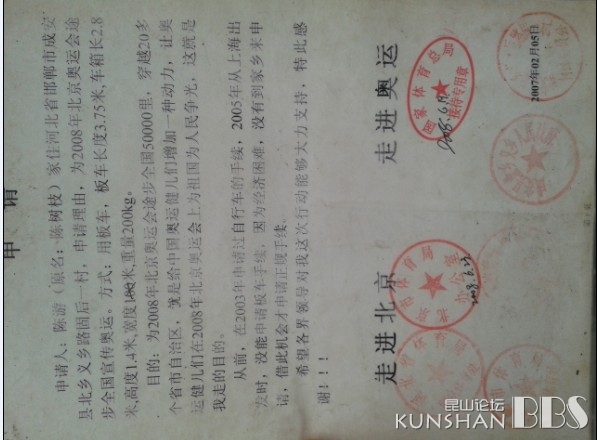 申 请
申请人：陈游（原名：陈树枝）家住河北省邯郸市成安
县北乡义乡路固后一村，申请理由，为2008年北京奥运会途
步全国宣传奥运。方式：用板车，板车长度3.75米，车箱长2.8
米，高度1.4米，宽度1米，重量200kg。
目的：为2008年北京奥运会途步全国50000里，穿越20多
个省市自治区，就是给中国奥运健儿们增加一种动力，让奥
运健儿们在2008年北京奥运会上为祖国为人民争光，这就是
我走的目的。
从前，在2003年申请过自行车的手续，2005年从上海出
发时，没能申请板车手续，因为经济困难，没有到家乡来申
请，借此机会才申请正规手续。
希望各界领导对我这次行动能够大力支持，特此感
谢！！！
走进北京 走进奥运
国家体育总局
接待专用章
2008.6.19
2008.6.23
2007年02月05日
昆山论坛
KUNSHAN BBS